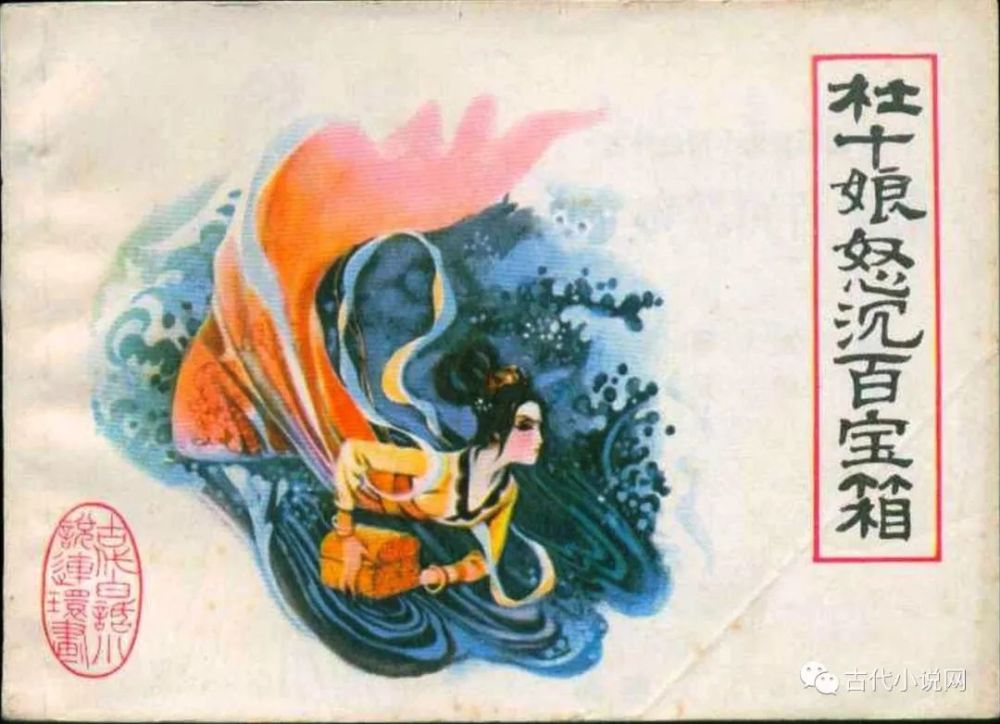 杜十娘怒沉百宝箱
古代白話小
說連環畫
古代小说网